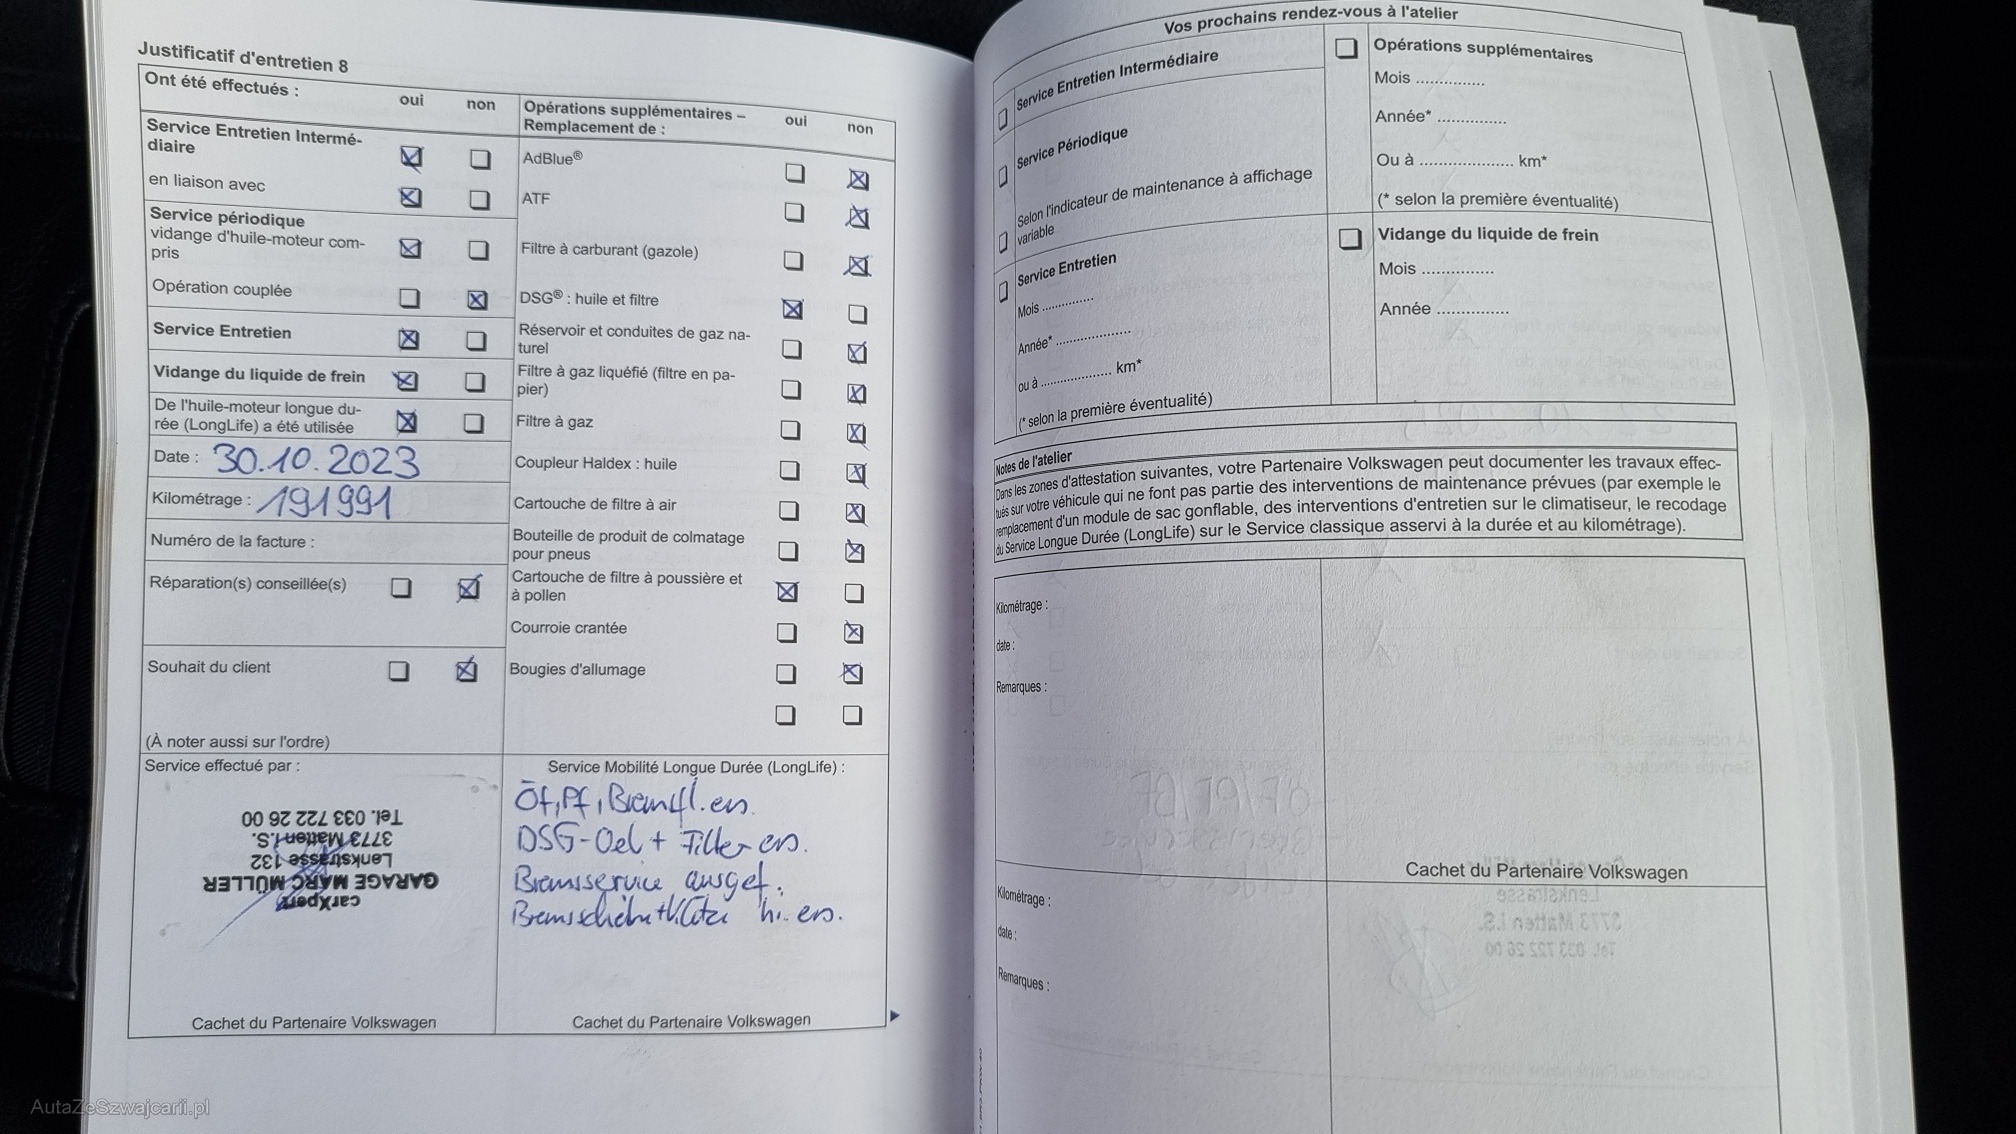 Justificatif d'entretien 8
Ont été effectués :
oui
non
Service Entretien Intermé-
diaire
en liaison avec
Service périodique
vidange d'huile-moteur com-
pris
Opération couplée
Service Entretien
Vidange du liquide de frein
De l'huile-moteur longue du-
rée (LongLife) a été utilisée
Date : 30.10.2023
Kilométrage : 191991
Numéro de la facture :
Réparation(s) conseillée(s)
Souhait du client
(À noter aussi sur l'ordre)
Opérations supplémentaires –
Remplacement de :
oui
non
AdBlue®
ATF
Filtre à carburant (gazole)
DSG® : huile et filtre
Réservoir et conduites de gaz na-
turel
Filtre à gaz liquéfié (filtre en pa-
pier)
Filtre à gaz
Coupleur Haldex : huile
Cartouche de filtre à air
Bouteille de produit de colmatage
pour pneus
Cartouche de filtre à poussière et
à pollen
Courroie crantée
Bougies d'allumage
Service effectué par :
carXpert
GARAGE MARC MÜLLER
Lenkstrasse 132
3773 Matten i.S.
Tel. 033 722 26 00
Cachet du Partenaire Volkswagen
Service Mobilité Longue Durée (LongLife) :
Öf, Pf, Bremsfl. ers.
DSG-Oel + Filter ers.
Bremsservice ausgef.
hi. ers.
Cachet du Partenaire Volkswagen
Vos prochains rendez-vous à l'atelier
Service Entretien Intermédiaire
Service Périodique
Selon l'indicateur de maintenance à affichage
variable
Service Entretien
Mois ..............
Année* ....................
ou à ................... km*
(* selon la première éventualité)
Opérations supplémentaires
Mois ..............
Année* ..............
Ou à ................... km*
(* selon la première éventualité)
Vidange du liquide de frein
Mois ..............
Année ..............
Notes de l'atelier
Dans les zones d'attestation suivantes, votre Partenaire Volkswagen peut documenter les travaux effec-
tués sur votre véhicule qui ne font pas partie des interventions de maintenance prévues (par exemple le
remplacement d'un module de sac gonflable, des interventions d'entretien sur le climatiseur, le recodage
du Service Longue Durée (LongLife) sur le Service classique asservi à la durée et au kilométrage).
Kilométrage :
date :
Remarques :
Cachet du Partenaire Volkswagen
Kilométrage :
date :
Remarques :
AutaZeSzwajcarii.pl